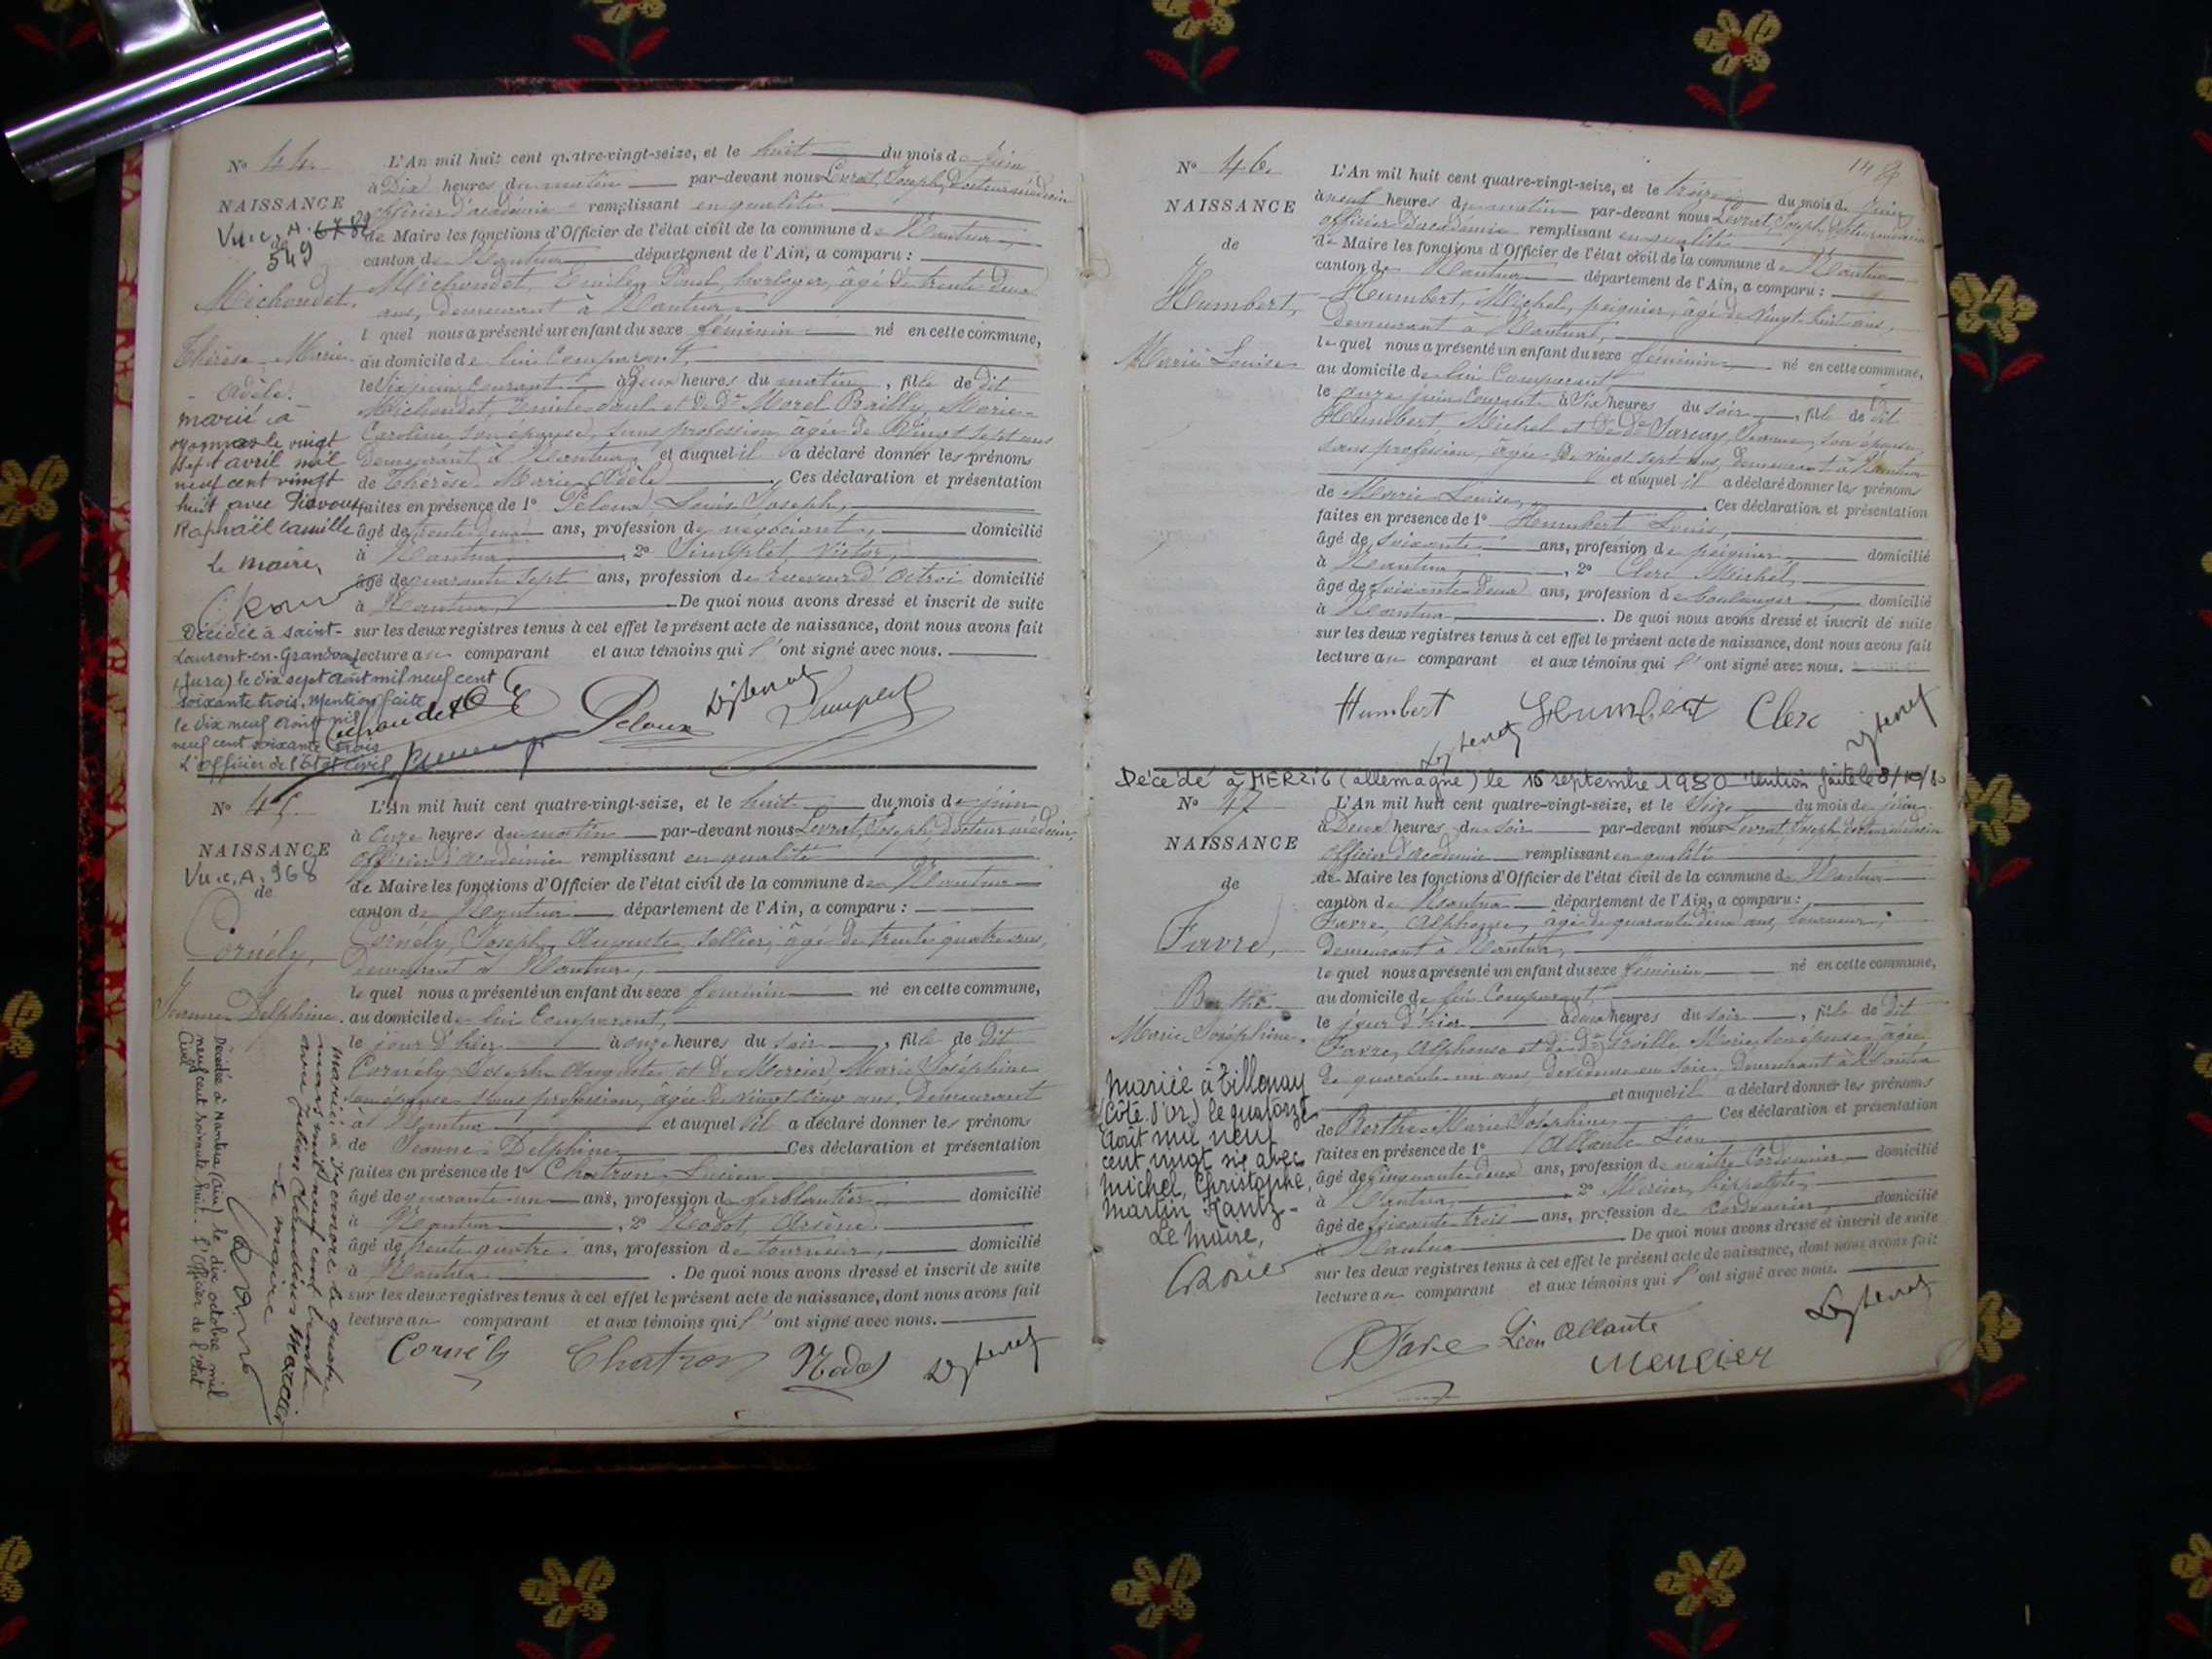 N° 44.
NAISSANCE
Vu. c. A. 6782
de
549
Michondet,
Thérèse-Marie-
Adèle.
L'An mil huit cent quatre-vingt-seize, et le huit du mois de juin
à Dix heures du matin par-devant nous Levrat, Joseph, Docteur médecin
officier d'académie remplissant en qualité
de Maire les fonctions d'Officier de l'état civil de la commune de Nantua,
canton de Nantua département de l'Ain, a comparu :
Michondet, Emile Paul, horloger, âgé de trente deux
ans, demeurant à Nantua,
l quel nous a présenté un enfant du sexe féminin né en cette commune,
au domicile de lui Comparant,
le Six juin Courant à Deux heures du matin, fille de dit
Michondet, Emile-Paul et de De Morel Bailly, Marie-
Caroline son épouse, sans profession âgée de Vingt sept ans
demeurant à Nantua, et auquel il a déclaré donner les prénoms
de Thérèse-Marie-Adèle Ces déclaration et présentation
faites en présence de 1° Peloux Louis Joseph,
âgé de trente deux ans, profession de négociant, domicilié
à Nantua, 2° Simplet, Victor,
âgé de quarante sept ans, profession de Receveur d'Octroi domicilié
à Nantua, De quoi nous avons dressé et inscrit de suite
sur les deux registres tenus à cet effet le présent acte de naissance, dont nous avons fait
lecture au comparant et aux témoins qui l'ont signé avec nous.
marié à
le vingt
sept avril mil
neuf cent vingt
huit avec
Raphaël Camille
Le Maire,
Décédée à Saint-
Laurent-en-Grandvaux
(Jura) le dix sept août mil neuf cent
soixante trois. Mention faite
le dix neuf août mil
neuf cent soixante trois
L'Officier de l'État civil
Peloux
N° 45.
NAISSANCE
Vu. c. A. 968
de
Cornély,
Jeanne Delphine.
L'An mil huit cent quatre-vingt-seize, et le huit du mois de juin
à Onze heures du matin par-devant nous Levrat, Joseph, docteur médecin,
officier d'académie remplissant en qualité
de Maire les fonctions d'Officier de l'état civil de la commune de Nantua
canton de Nantua département de l'Ain, a comparu :
Cornély, Joseph Auguste, sellier, âgé de trente quatre ans,
Demeurant à Nantua,
le quel nous a présenté un enfant du sexe féminin né en cette commune,
au domicile de lui Comparant,
le jour d'hier à onze heures du soir, fille de dit
Cornély Joseph Auguste et de Mercier, Marie Joséphine
son épouse sans profession, âgée de vingt cinq ans, Demeurant
à Nantua et auquel il a déclaré donner les prénoms
de Jeanne Delphine Ces déclaration et présentation
faites en présence de 1° Chatron Lucien
âgé de quarante-un ans, profession de ferblantier, domicilié
à Nantua, 2° Nodot, Arsène
âgé de trente quatre ans, profession de tourneur, domicilié
à Nantua. De quoi nous avons dressé et inscrit de suite
sur les deux registres tenus à cet effet le présent acte de naissance, dont nous avons fait
lecture au comparant et aux témoins qui l'ont signé avec nous.
Mariée à Oyonnax le quatre
mars mil neuf cent trente
avec Julien Claudius
Le maire
Décédée à Nantua (Ain) le dix octobre mil
neuf cent soixante huit. L'Officier de l'état
Civil
Cornély Chatron Nodot
148
N° 46.
NAISSANCE
de
Humbert,
Marie Louise
L'An mil huit cent quatre-vingt-seize, et le treize du mois de juin
à neuf heures du matin par-devant nous Levrat, Joseph, docteur médecin
officier d'académie remplissant en qualité
de Maire les fonctions d'Officier de l'état civil de la commune de Nantua
canton de Nantua département de l'Ain, a comparu :
Humbert, Michel, peignier, âgé de Vingt huit ans,
Demeurant à Nantua,
le quel nous a présenté un enfant du sexe féminin né en cette commune,
au domicile de lui Comparant
le onze juin Courant à Six heures du soir, fille de dit
Humbert, Michel et de De Jeanne, son épouse,
sans profession, âgée de vingt sept ans, demeurant à Nantua
et auquel il a déclaré donner les prénoms
de Marie Louise, Ces déclaration et présentation
faites en présence de 1° Humbert Louis,
âgé de Soixante ans, profession de peignier domicilié
à Nantua, 2° Clerc Michel,
âgé de Soixante Deux ans, profession de boulanger domicilié
à Nantua. De quoi nous avons dressé et inscrit de suite
sur les deux registres tenus à cet effet le présent acte de naissance, dont nous avons fait
lecture au comparant et aux témoins qui l'ont signé avec nous.
Humbert Humbert Clerc
Décédé à MERZIG (allemagne) le 16 septembre 1980 mention faite le 8/10/80
N° 47
NAISSANCE
de
Favre,
Berthe
Marie Joséphine.
L'An mil huit cent quatre-vingt-seize, et le Seize du mois de juin
à Deux heures du soir par-devant nous Levrat, Joseph, docteur médecin
officier d'académie remplissant en qualité
de Maire les fonctions d'Officier de l'état civil de la commune de Nantua
canton de Nantua département de l'Ain, a comparu :
Favre, Alphonse, âgé de quarante deux ans, tourneur,
Demeurant à Nantua,
le quel nous a présenté un enfant du sexe féminin né en cette commune,
au domicile de lui Comparant,
le jour d'hier à deux heures du soir, fille de dit
Favre, Alphonse et de De Marie, son épouse âgée
de quarante un ans, dévideuse en soie, demeurant à Nantua
et auquel il a déclaré donner les prénoms
de Berthe Marie Joséphine Ces déclaration et présentation
faites en présence de 1° Allante Léon
âgé de Cinquante deux ans, profession de maître Cordonnier domicilié
à Nantua, 2° Mercier, hippolyte,
âgé de Soixante trois ans, profession de Cordonnier, domicilié
à Nantua De quoi nous avons dressé et inscrit de suite
sur les deux registres tenus à cet effet le présent acte de naissance, dont nous avons fait
lecture au comparant et aux témoins qui l'ont signé avec nous.
Mariée à Tillenay
(Côte d'or) le quatorze
Août mil neuf
cent vingt six avec
Michel, Christophe,
Martin Kantz-
Le Maire,
Favre Léon Allante
Mercier